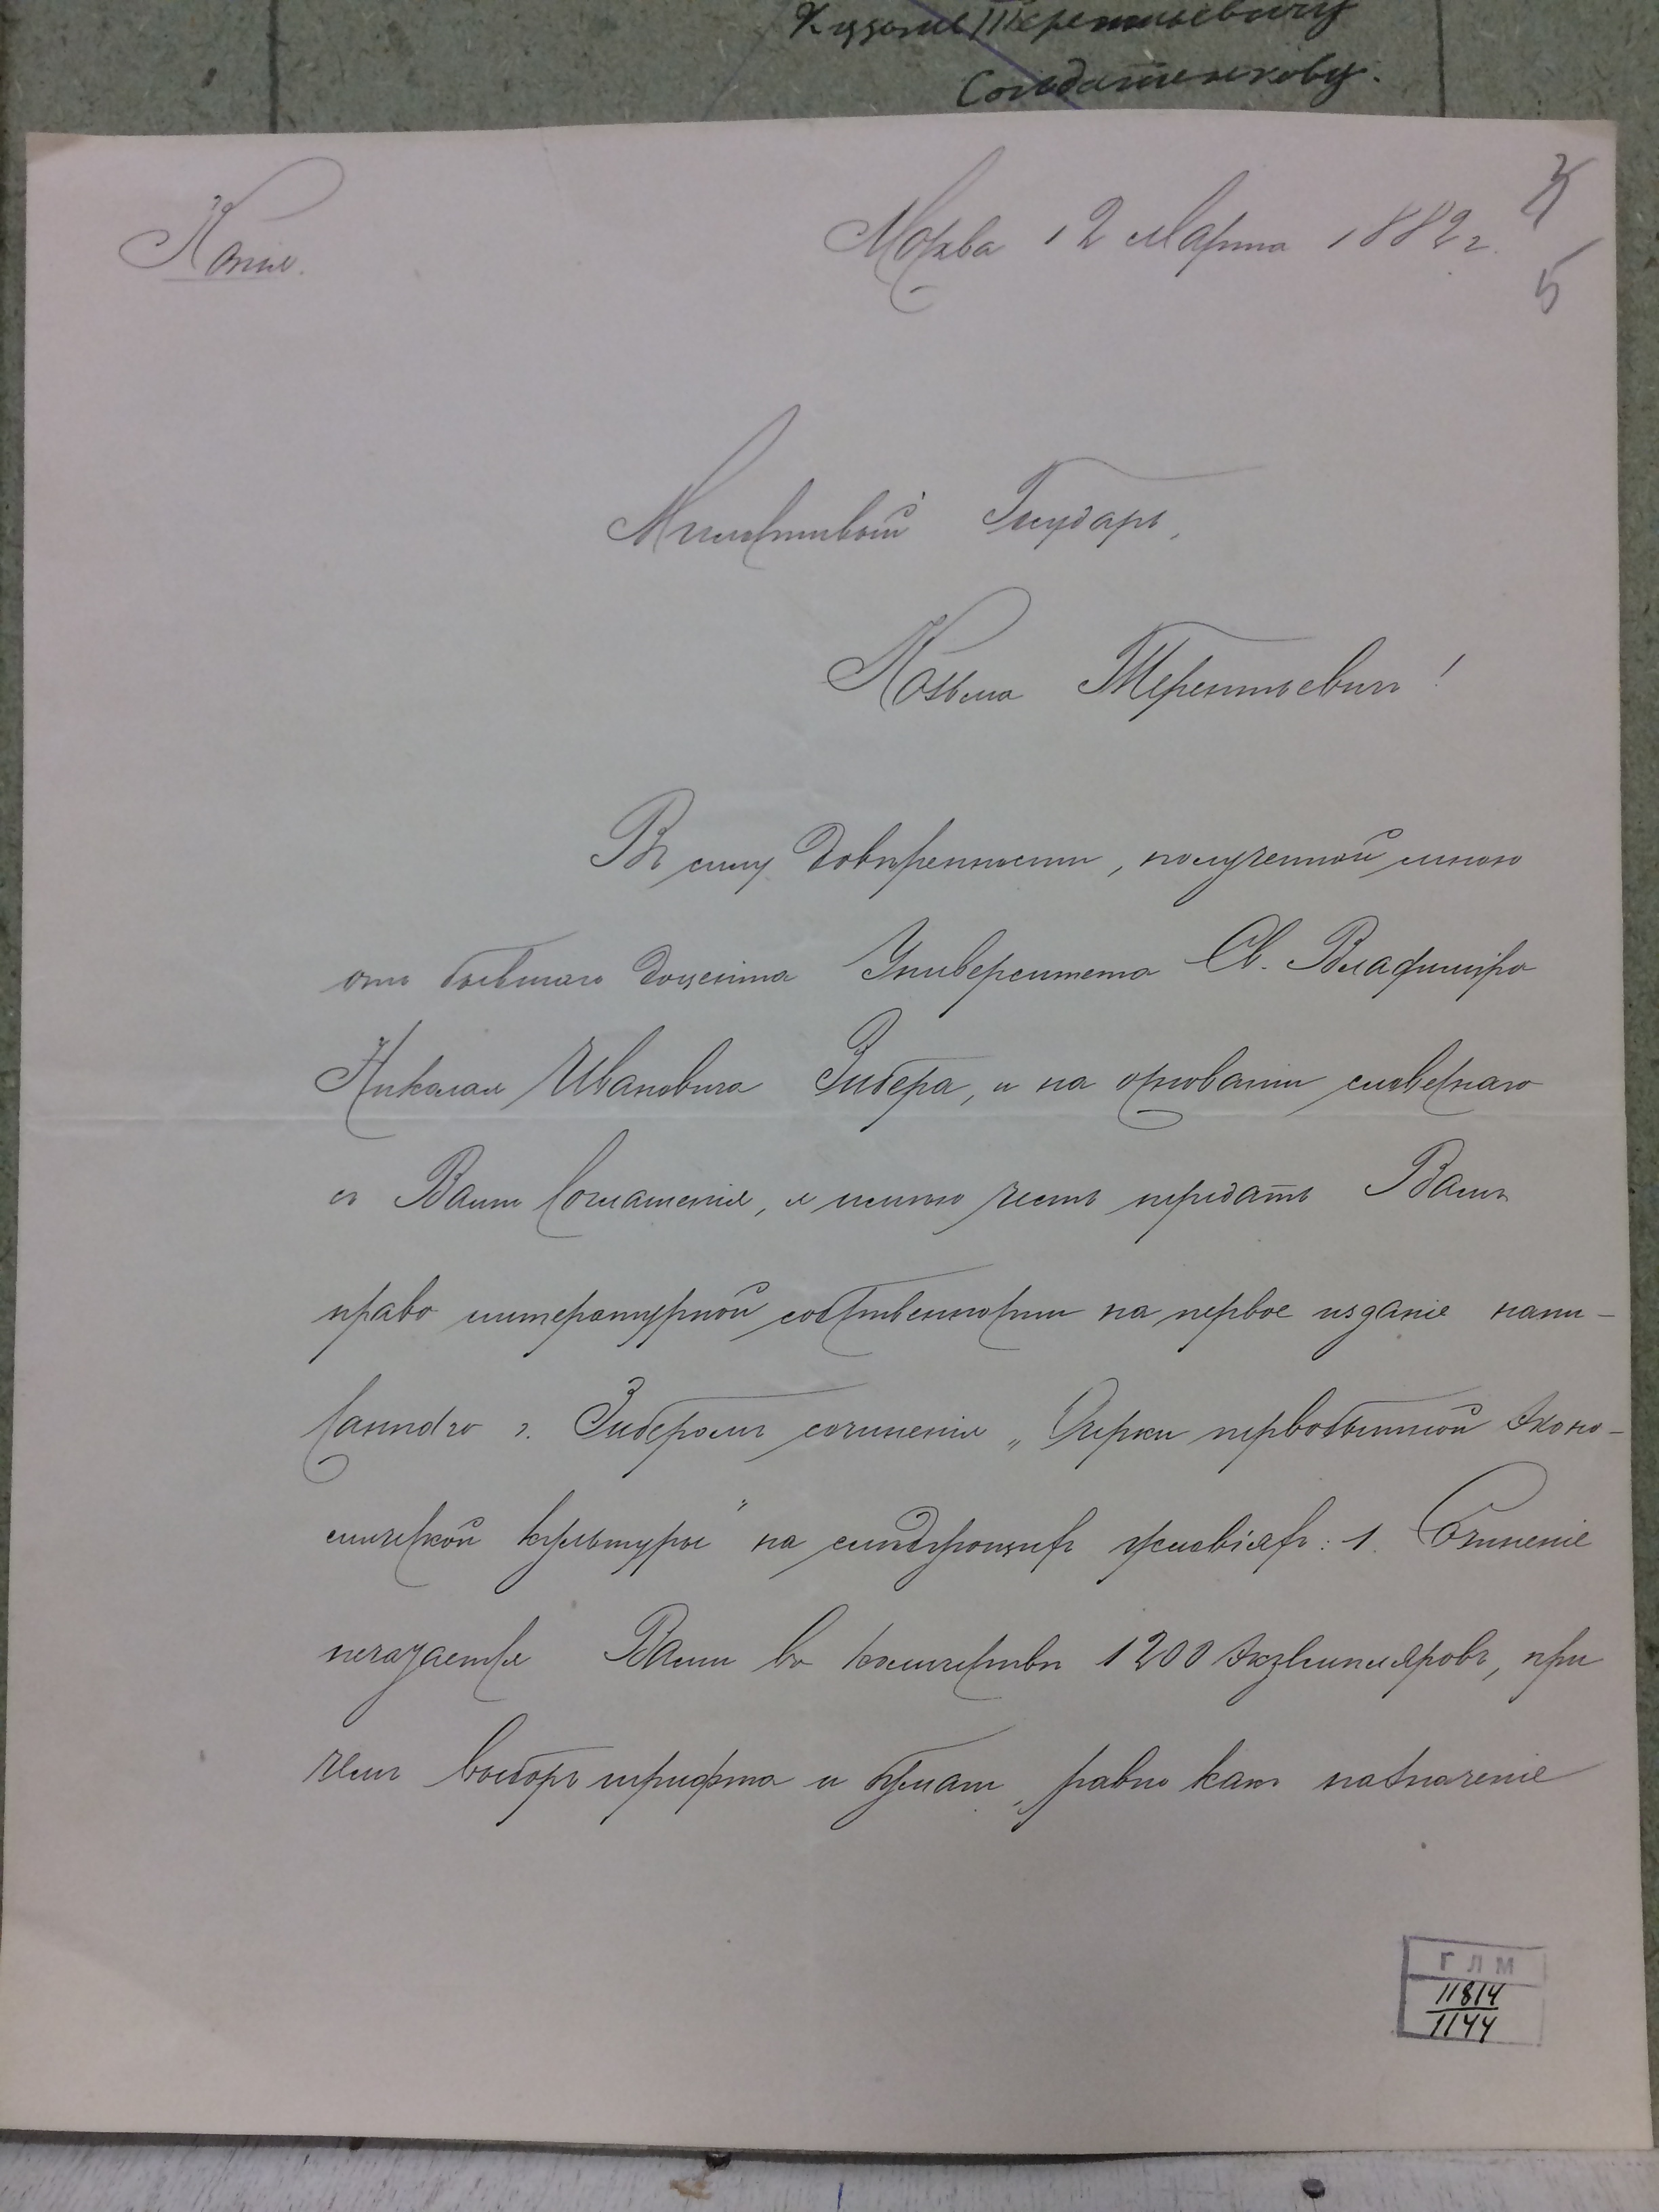 Кузьме Терентьевичу
Солдатенкову.
Копія.
Москва 12 Марта 1882 г.
5
Милостивый Государь,
Козьма Терентьевичъ!
Въ силу довѣренности, полученной мною
отъ бывшаго доцента Университета Св. Владиміра
Николая Ивановича Зибера, и на основаніи словеснаго
съ Вами соглашенія, я имѣю честь передать Вамъ
право литературной собственности на первое изданіе напи-
саннаго г. Зиберомъ сочиненія „Очерки первобытной эконо-
мической культуры" на слѣдующихъ условіяхъ: 1. Сочиненіе
печатается Вами въ количествѣ 1200 экземпляровъ, при
чемъ выборъ шрифта и бумаги, равно какъ назначеніе
ГЛМ
11814
1144